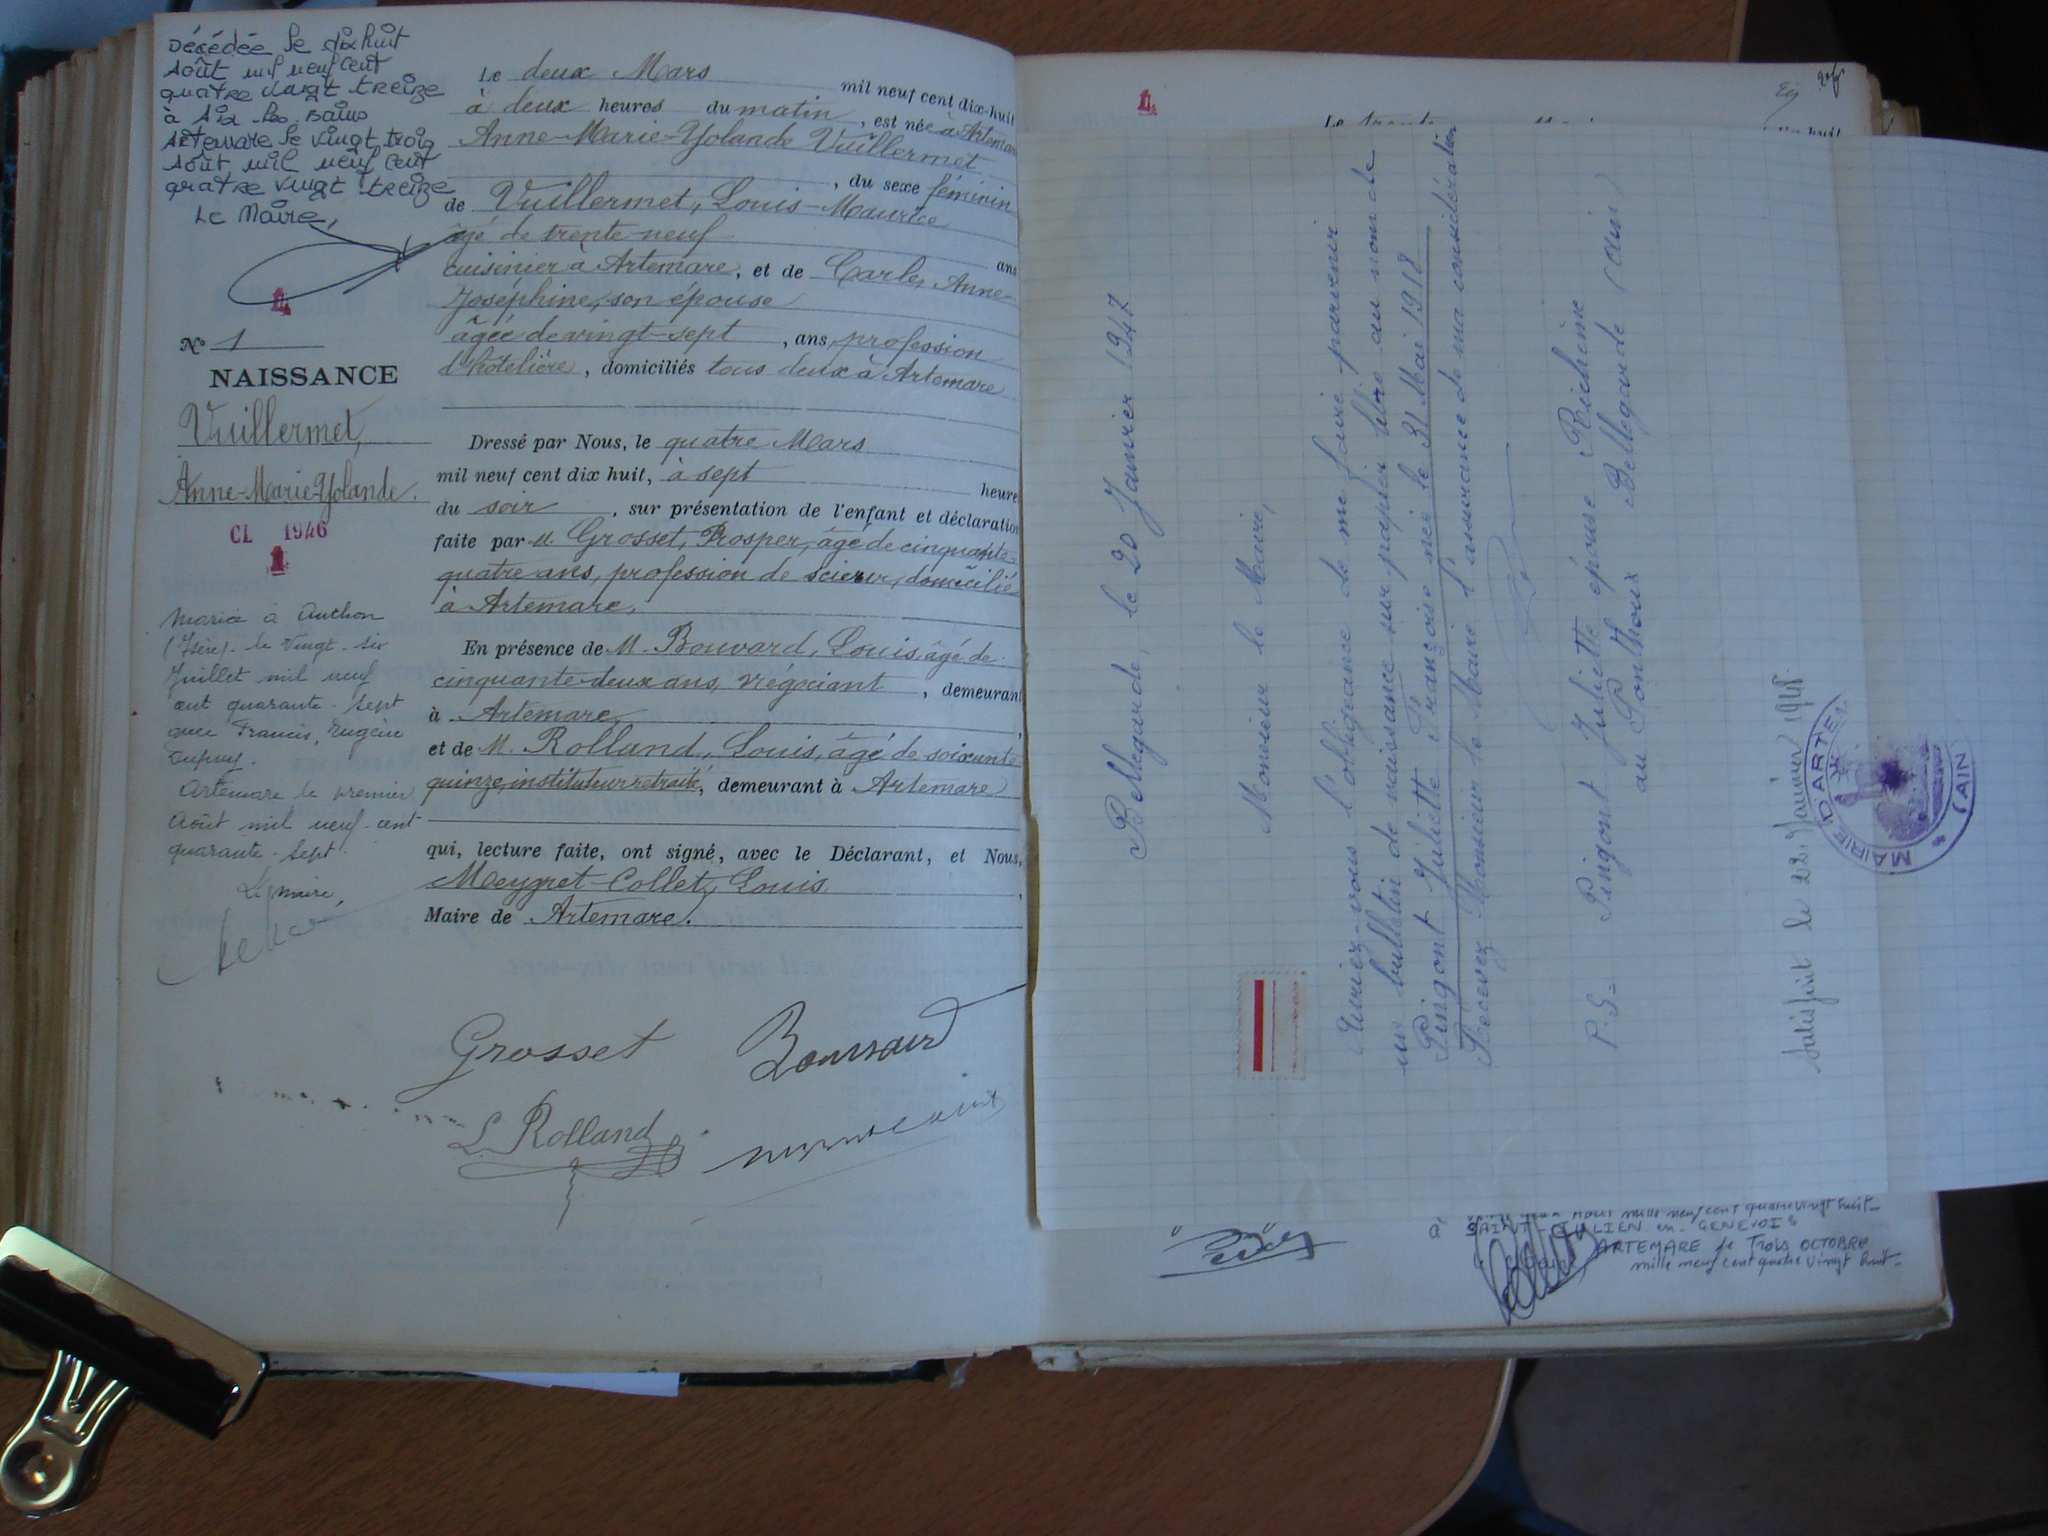 Décédée le dix huit
Août mil neuf cent
quatre vingt treize
à Aix les Bains
Artemare le vingt trois
Août mil neuf cent
quatre vingt treize
Le Maire,
1
N° 1
NAISSANCE
Vuillermet,
Anne-Marie-Yolande.
CL 1946
1
Mariée à Anthon
(Isère) le vingt-six
Juillet mil neuf
cent quarante-sept
avec Francis, Eugène
Dupuy.
Artemare le premier
Août mil neuf cent
quarante-sept
Le maire,
Le deux Mars mil neuf cent dix-huit
à deux heures du matin, est née à Artemare
Anne-Marie-Yolande Vuillermet
, du sexe féminin
de Vuillermet, Louis-Maurice
âgé de trente-neuf ans
cuisinier à Artemare, et de Carle, Anne-
Joséphine, son épouse
âgée de vingt-sept, ans, profession
d'hôtelière, domiciliés tous deux à Artemare
Dressé par Nous, le quatre Mars
mil neuf cent dix huit, à sept heure
du soir, sur présentation de l'enfant et déclaration
faite par M. Grosset, Prosper, âgé de cinquante-
quatre ans, profession de scieur, domicilié
à Artemare,
En présence de M. Bouvard, Louis, âgé de
cinquante-deux ans, négociant, demeurant
à Artemare,
et de M. Rolland, Louis, âgé de soixante
quinze, instituteur retraité, demeurant à Artemare
qui, lecture faite, ont signé, avec le Déclarant, et Nous,
Meygret-Collet, Louis,
Maire de Artemare.
Grosset Bouvard
L. Rolland
1
Le trente
Bellegarde, le 20 Janvier 1947
Monsieur le Maire,
Auriez-vous l'obligeance de me faire parvenir
un bulletin de naissance sur papier libre au nom de
Pingont Juliette Françoise née le 31 Mai 1918
Recevez Monsieur le Maire l'assurance de ma considération
P.S- Pingont Juliette épouse Richerme
au Ponthoux Bellegarde (Ain)
Satisfait le 22 Janvier 1948
MAIRIE D'ARTE
(AIN
août mille neuf cent quatre vingt huit
à SAINT-JULIEN en-GENEVOIS
ARTEMARE le Trois OCTOBRE
mille neuf cent quatre vingt huit